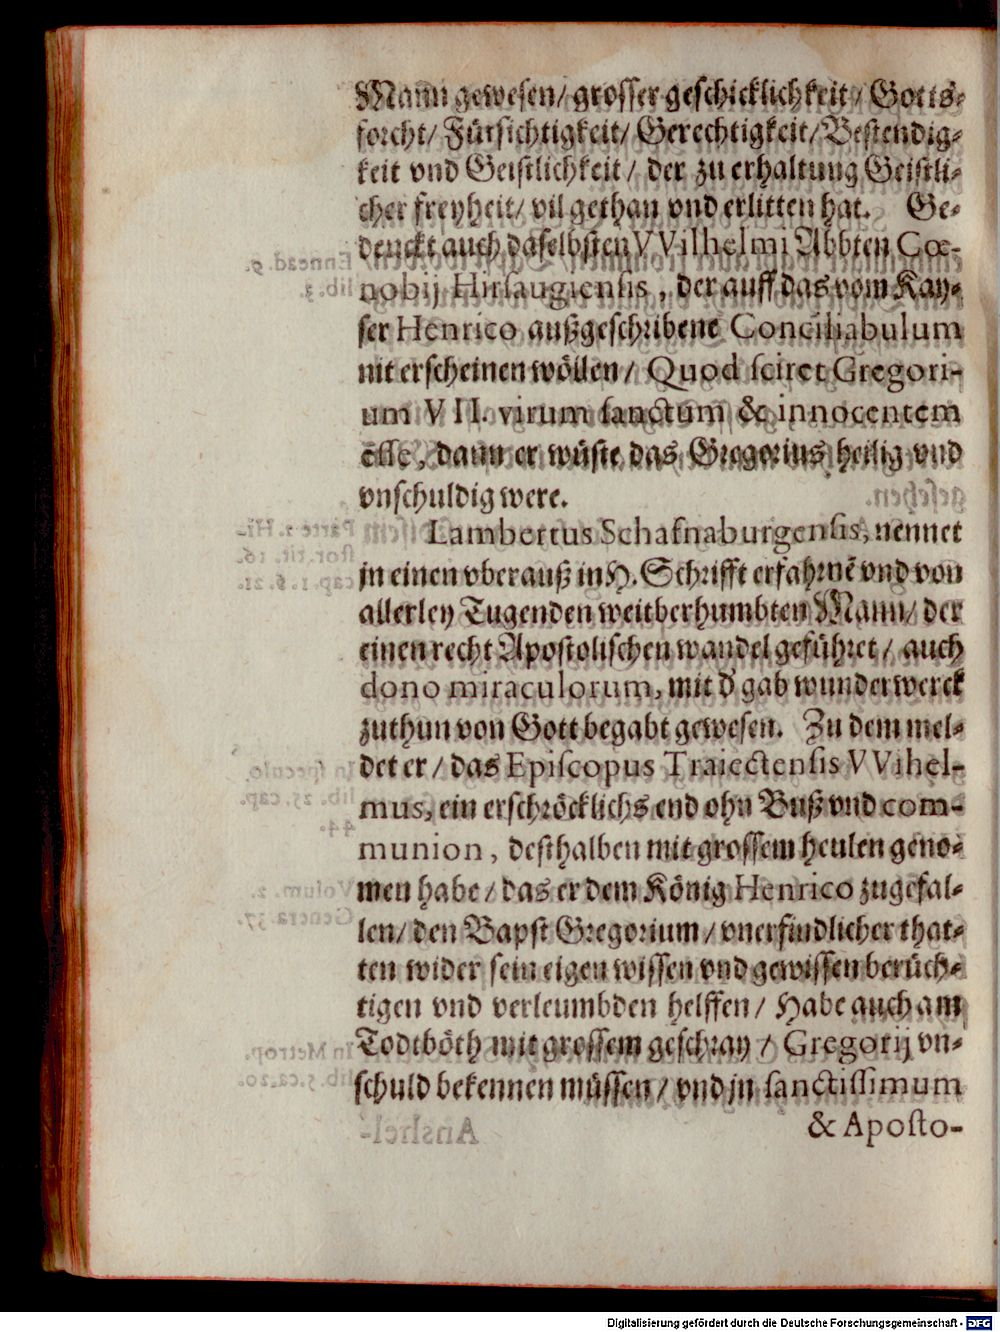 Mann gewesen/ grosser geschicklichkeit/ Gotts-
forcht/ Fürsichtigkeit/ Gerechtigkeit/ Bestendig-
keit vnd Geistlichkeit/ der zu erhaltung Geistli-
cher freyheit/ vil gethan vnd erlitten hat. Ge-
denckt auch daselbsten VVilhelmi Abbten Cœ-
nobij Hirsaugiensis, der auff das vom Kay-
ser Henrico außgeschribene Conciliabulum
nit erscheinen wöllen/ Quod sciret Gregori-
um VII. virum sanctum & innocentem
esse, dann er wüste das Gregorius heilig vnd
vnschuldig were.
Lambertus Schafnaburgensis, nennet
jn einen vberauß in H. Schrifft erfahrnē vnd von
allerley Tugenden weitberhumbten Mann/ der
einen recht Apostolischen wandel geführet/ auch
dono miraculorum, mit d' gab wunderwerck
zuthun von Gott begabt gewesen. Zu dem mel-
det er/ das Episcopus Traiectensis VVihel-
mus, ein erschröcklichs end ohn Buß vnd com-
munion, desthalben mit grossem heulen geno-
men habe/ das er dem König Henrico zugefal-
len/ den Bapst Gregorium/ vnerfindlicher that-
ten wider sein eigen wissen vnd gewissen berüch-
tigen vnd verleumbden helffen/ Habe auch am
Todtböth mit grossem geschray/ Gregorij vn-
schuld bekennen müssen/ vnd jn sanctissimum
& Aposto-
Digitalisierung gefördert durch die Deutsche Forschungsgemeinschaft - DFG